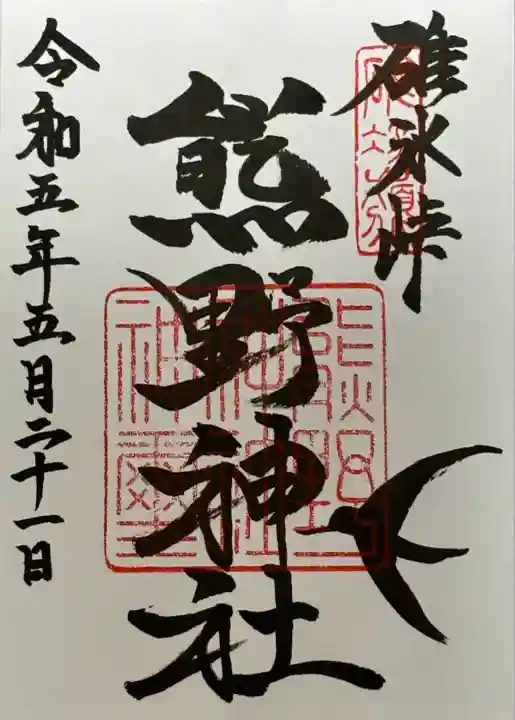 碓氷峠
熊野神社
令和五年五月二十一日
熊野神社神璽